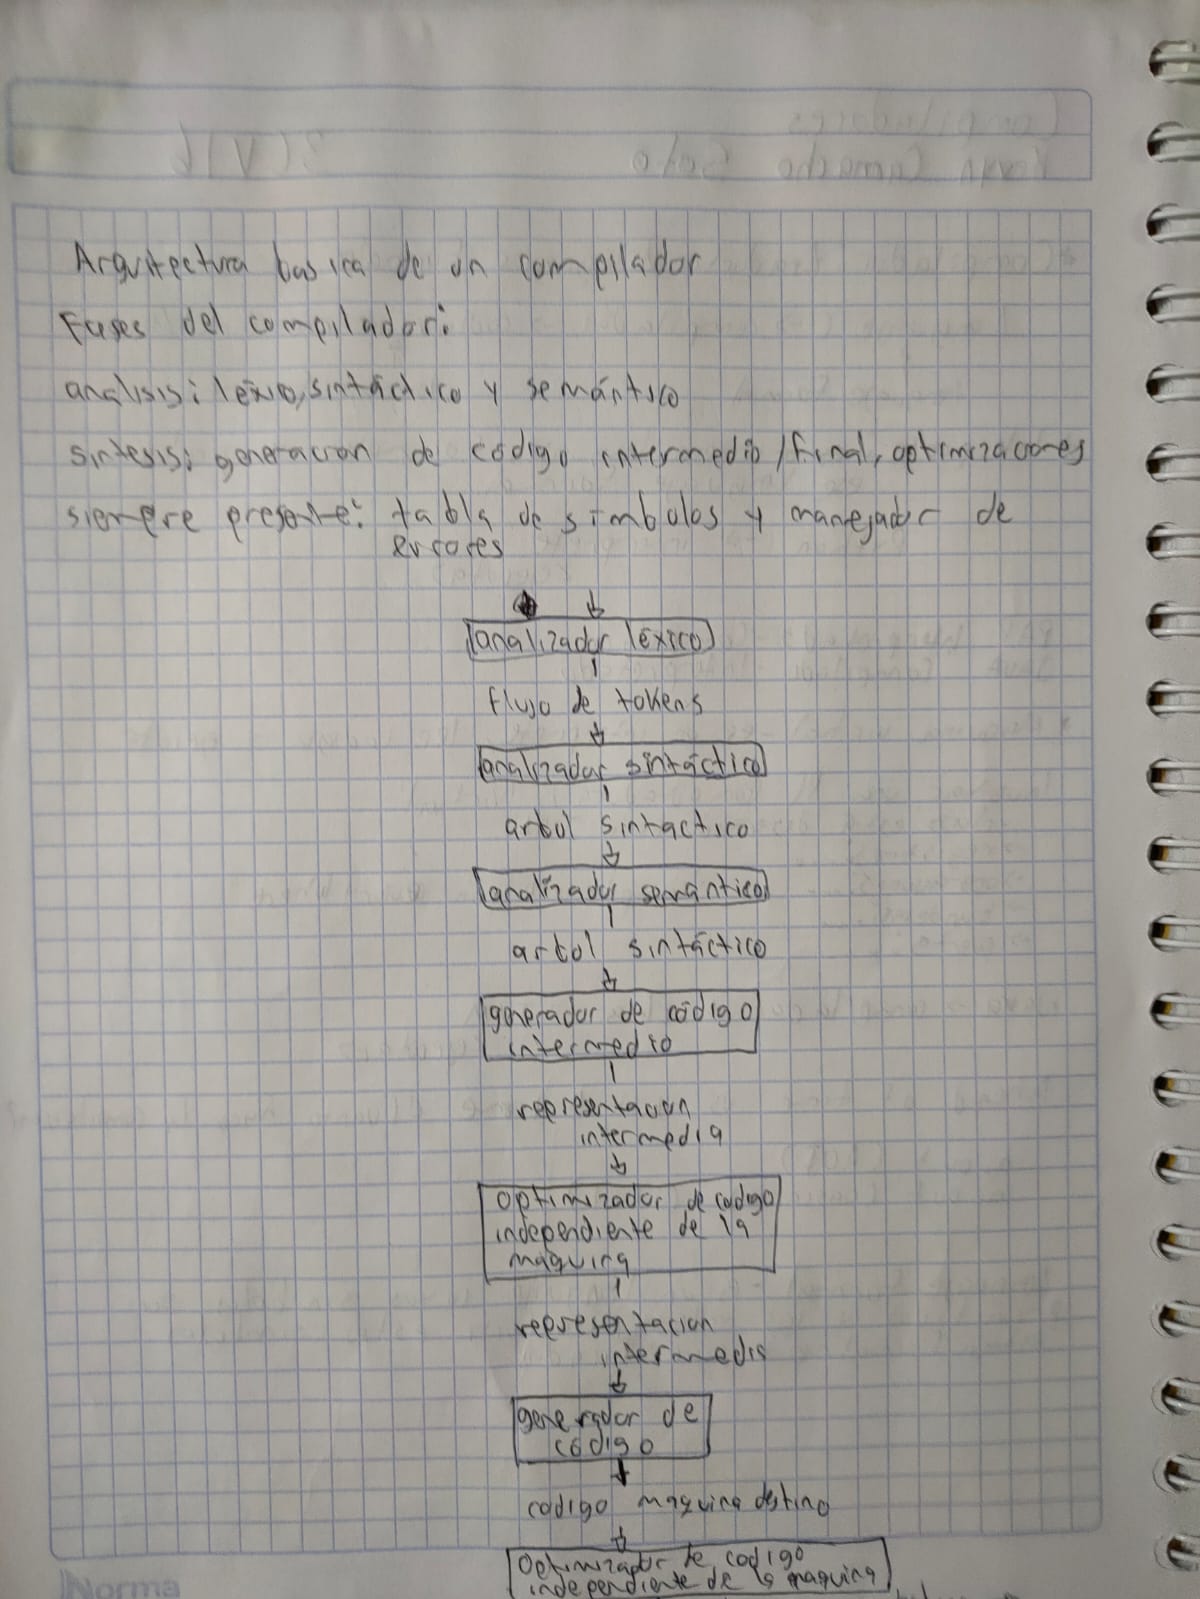 Arquitectura basica de un compilador
Fases del compilador:
análisis: léxico, sintáctico y semántico
sintesis: generacion de código intermedio/final, optimizaciones
siempre presente: tabla de simbolos y manejador de
errores
analizador léxico
flujo de tokens
analizador sintáctico
arbol sintactico
analizador semántico
arbol sintáctico
generador de código
intermedio
representacion
intermedia
optimizador de codigo
independiente de la
maquina
representacion
intermedia
generador de
código
codigo maquina destino
Optimizador de codigo
independiente de la maquina
Norma